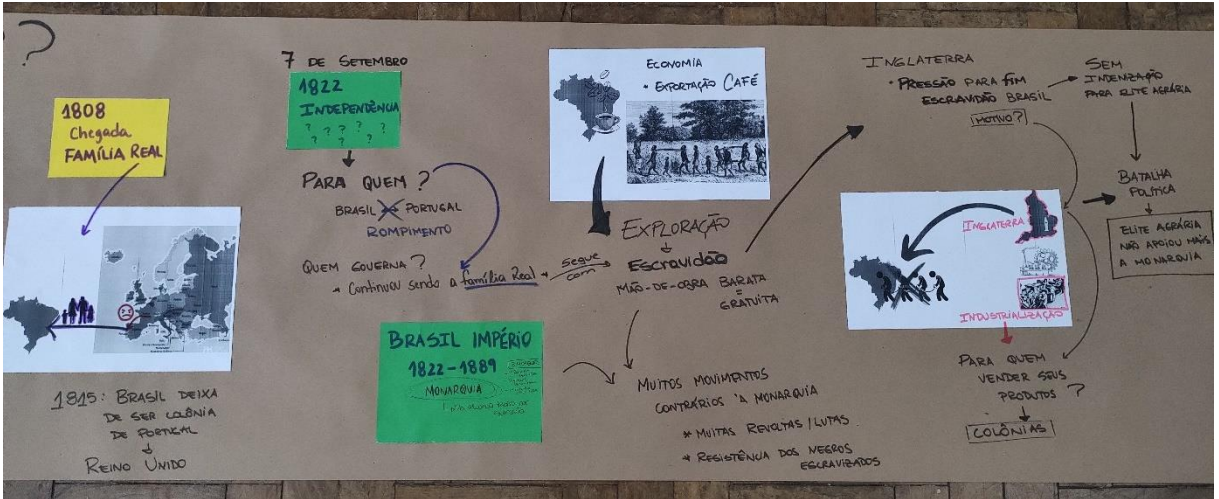 ?
1808
Chegada
FAMÍLIA REAL
1815: BRASIL DEIXA
DE SER COLÔNIA
DE PORTUGAL
REINO UNIDO
7 DE SETEMBRO
1822
INDEPENDÊNCIA
? ? ? ? ?
? ?
PARA QUEM?
BRASIL PORTUGAL
ROMPIMENTO
QUEM GOVERNA?
* Continuou sendo a família Real
segue
com
BRASIL IMPÉRIO
1822-1889
MONARQUIA
ECONOMIA
* EXPORTAÇÃO CAFÉ
EXPLORAÇÃO
ESCRAVIDÃO
MÃO-DE-OBRA BARATA
=
GRATUITA
MUITOS MOVIMENTOS
CONTRÁRIOS À MONARQUIA
* MUITAS REVOLTAS/LUTAS
* RESISTÊNCIA DOS NEGROS
ESCRAVIZADOS
INGLATERRA
• PRESSÃO PARA FIM
ESCRAVIDÃO BRASIL
MOTIVO?
SEM
INDENIZAÇÃO
PARA ELITE AGRÁRIA
BATALHA
POLÍTICA
ELITE AGRÁRIA
NÃO APOIOU MAIS
A MONARQUIA
INGLATERRA
INDUSTRIALIZAÇÃO
PARA QUEM
VENDER SEUS
PRODUTOS ?
COLÔNIAS